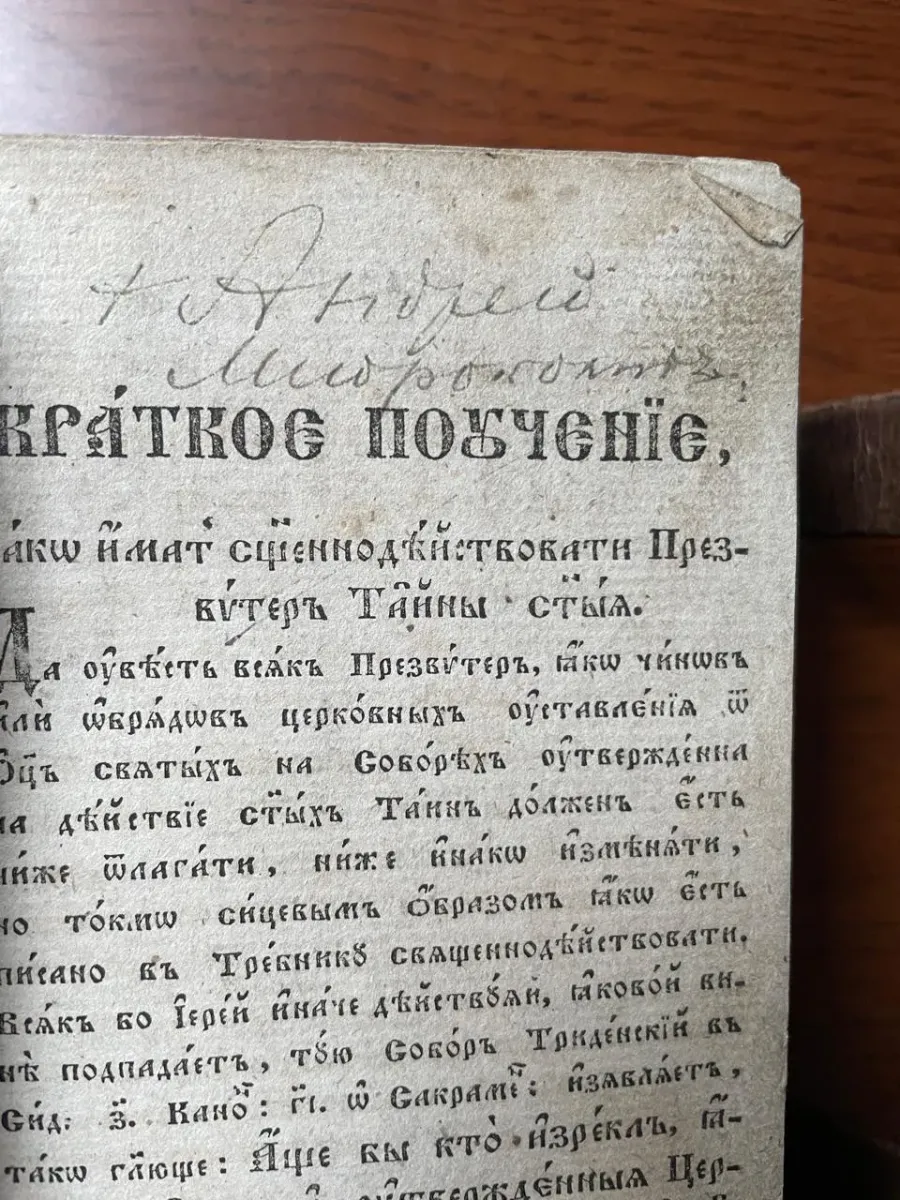 + Андрей
КРА́ТКОЕ ПОꙊЧЕНЇЕ,
а́кѡ и҆́мат̾ сщ҃еннодѣ́йствовати През-
вѵ́теръ Та̑йны ст҃ы́ѧ.
Да ᲂу҆вѣ́сть всѧ́къ Презвѵ́теръ, ꙗ҆́кѡ чи́нѡвъ
и҆лѝ ѡ҆брѧ́дѡвъ церко́вныхъ ᲂу҆ставле́нїѧ ѿ
Ѻ҆ц҃ъ свѧты́хъ на Собо́рѣхъ ᲂу҆твержде́нна
на дѣ́йствїе ст҃ы́хъ Та́инъ до́лженъ є҆́сть
ни́же ѿлага́ти, ни́же и҆на́кѡ и҆змѣнѧ́ти,
но то́кмѡ си́цевымъ ѻ҆́бразомъ ꙗ҆́кѡ є҆́сть
писано въ Тре́бникꙋ свѧщеннодѣ́йствовати.
Всѧ́къ бо І҆ере́й и҆на́че дѣ́йствꙋѧй, ꙗ҆ково́й ви-
нѣ̀ подпада́етъ, тꙋ́ю Собо́ръ Триде́нскїй въ
Сид: з҃. Кано́н: г҃і. ѡ҆ Сакраме́н: и҆з̾ѧвлѧ́етъ,
та́кѡ гл҃юще: А҆́ще бы кто̀ и҆зре́клъ, ꙗ҆́-
ᲂу҆твержде́нныѧ Цер-